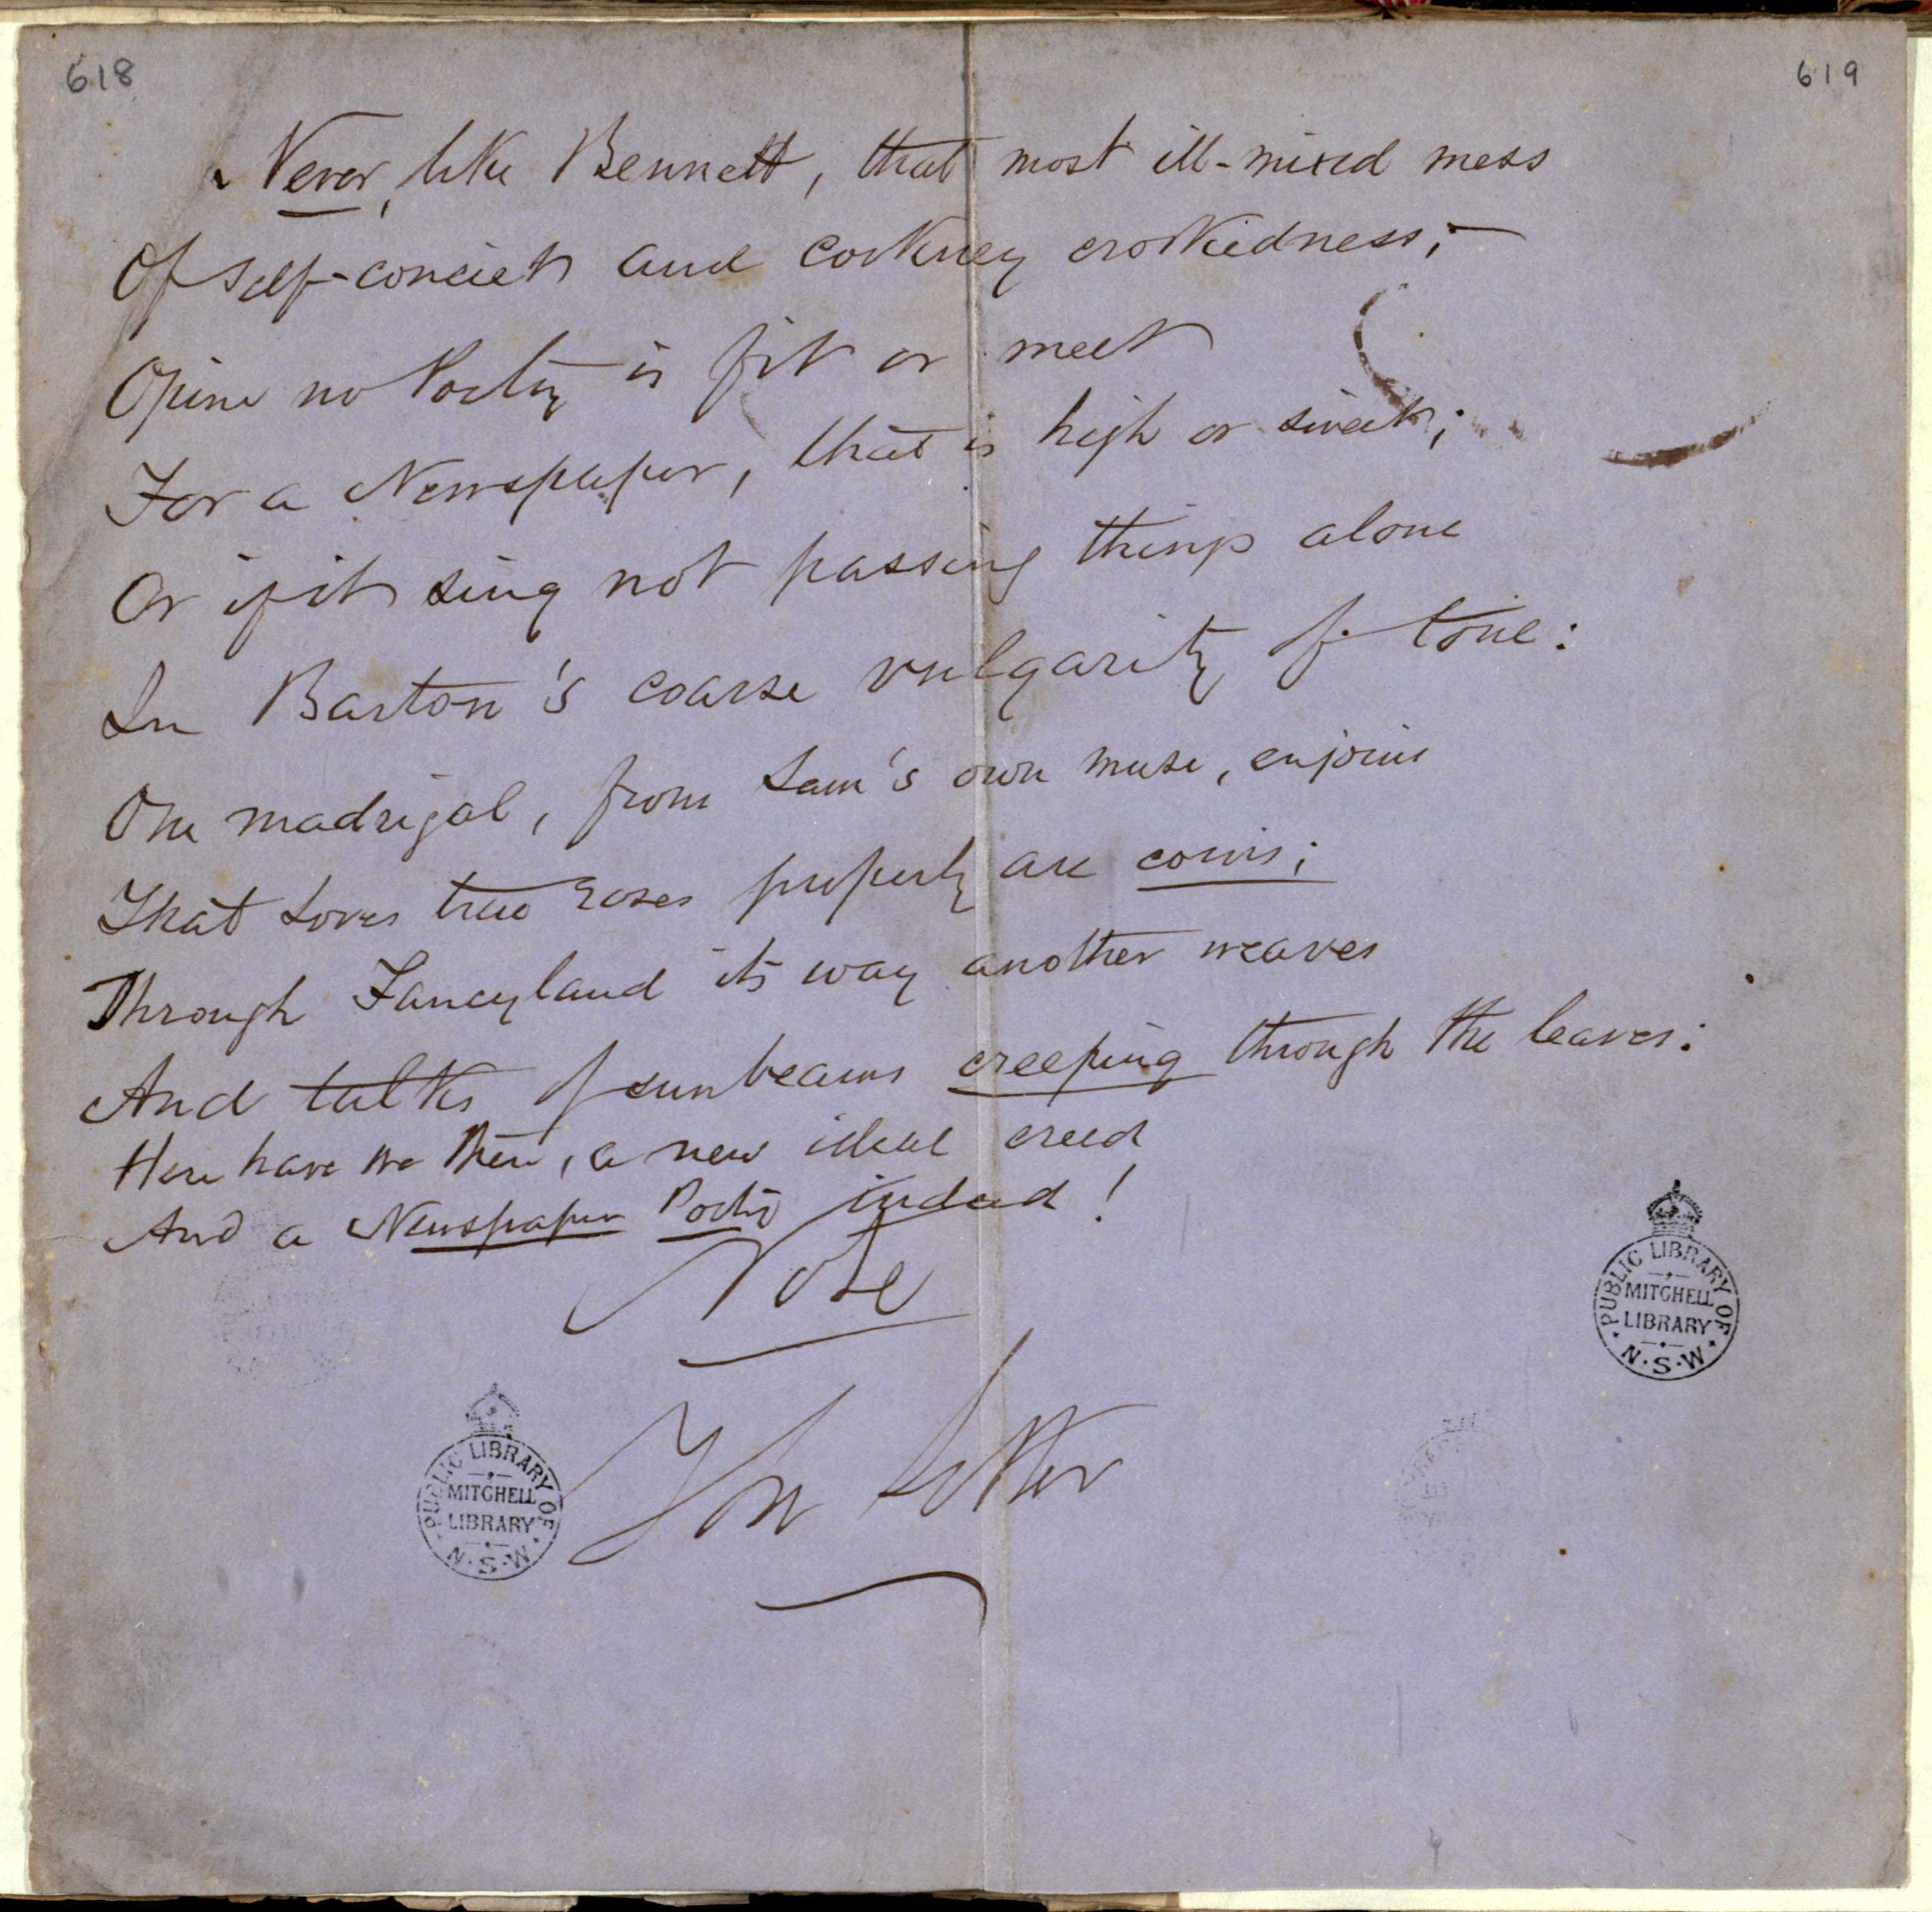 618
619
Never, like Bennett, that most ill-mixed mess
Of self-conceit and cockney crookedness;—
Opine no Poetry is fit or meet
For a Newspaper, that is high or sweet;
Or if it sing not passing things alone
In Barton's coarse vulgarity of tone:
One madrigal, from Sam's own muse, enjoins
That Loves true roses properly are coins;
Through Fancyland its way another weaves
And talks of sunbeams creeping through the leaves:
Here have we then, a new ideal creed
And a Newspaper Poetry indeed!
PUBLIC LIBRARY OF
MITCHELL
LIBRARY
N.S.W
PUBLIC LIBRARY OF
MITCHELL
LIBRARY
N.S.W